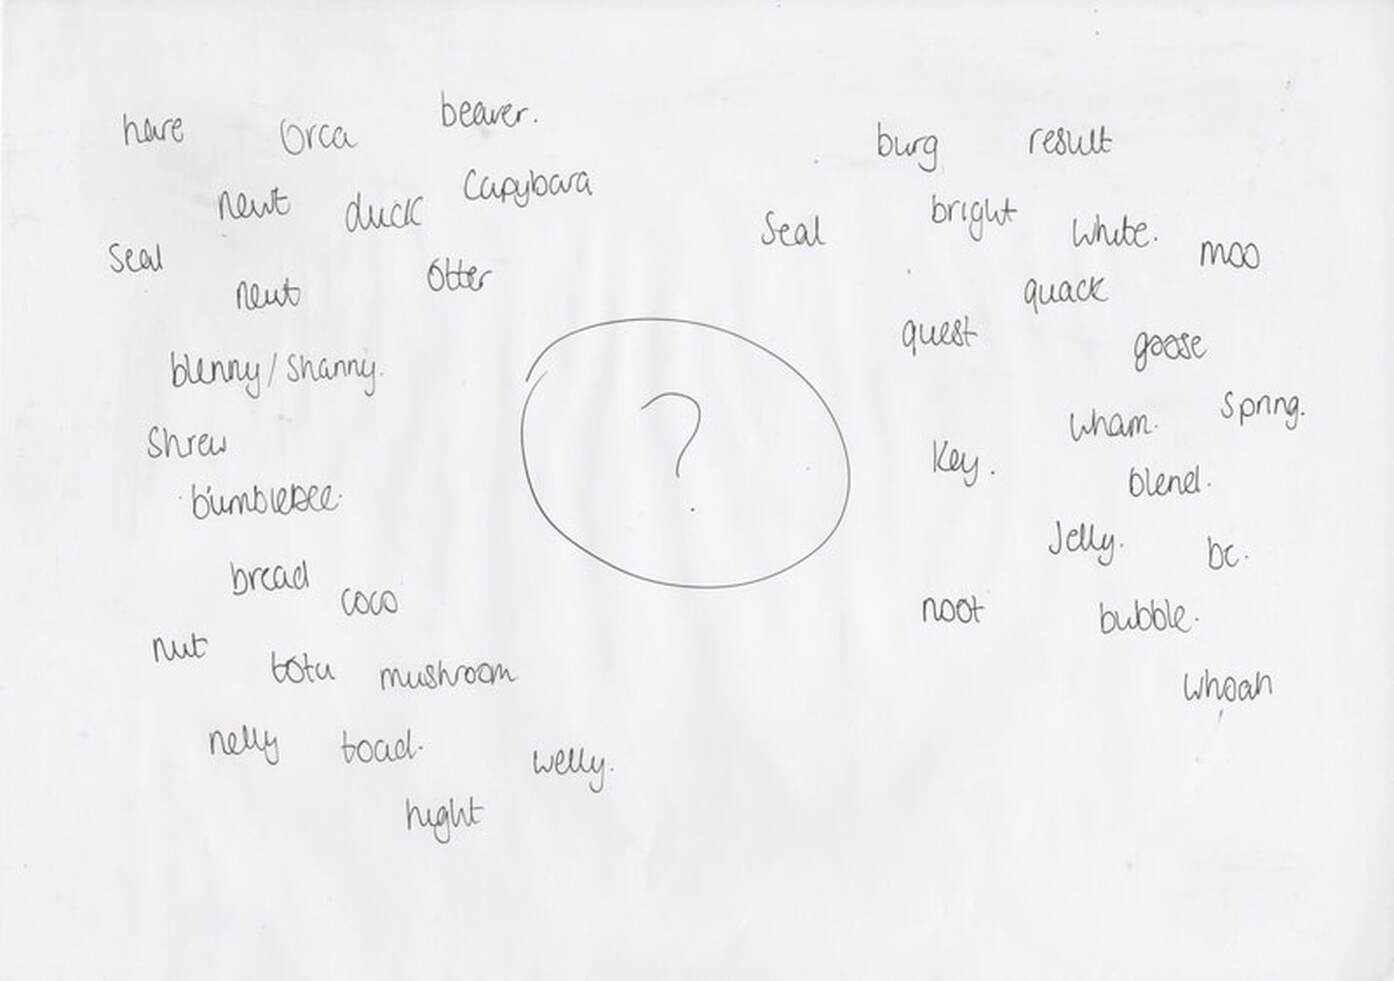 hare
Orca
beaver.
newt
duck
Capybara
Seal
newt
Otter
blenny/Shanny.
Shrew
bumblebee
bread
coco
nut
totu
mushroom
nelly
toad.
welly.
hight
?
burg
result
Seal
bright
white.
moo
quack
quest
goose
wham.
Spring.
Key.
blend.
Jelly.
be.
noot
bubble.
whoah